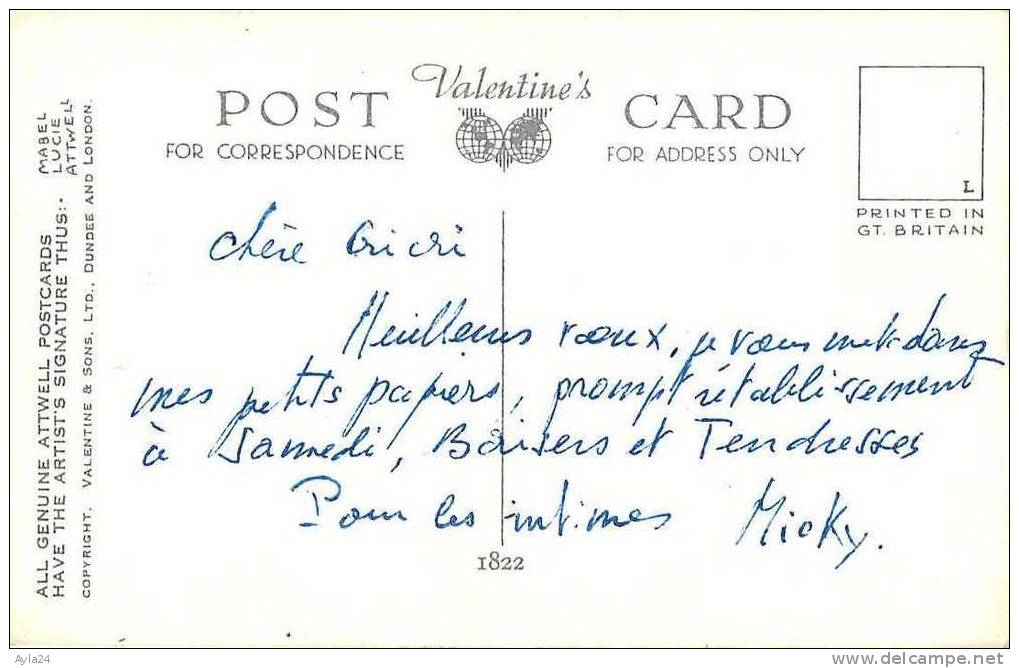 Valentine's
POST CARD
FOR CORRESPONDENCE
FOR ADDRESS ONLY
L
PRINTED IN
GT. BRITAIN
ALL GENUINE ATTWELL POSTCARDS
HAVE THE ARTIST'S SIGNATURE THUS:-
MABEL
LUCIE
ATTWELL
COPYRIGHT. VALENTINE & SONS, LTD., DUNDEE AND LONDON.
chère Cricri
Meilleurs vœux, je vous mets dans
mes petits papiers, prompt rétablissement
à Samedi, Baisers et Tendresses
Pour les intimes Micky.
1822
Ayla24
www.delcampe.net